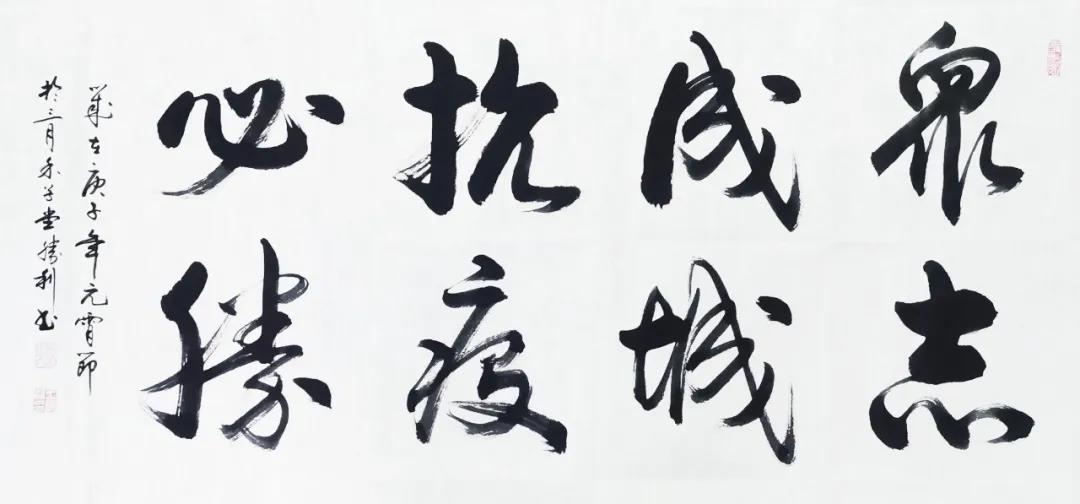 眾志
成城
抗疫
必勝
歲在庚子年元宵節
於三月禾子堂勝利書